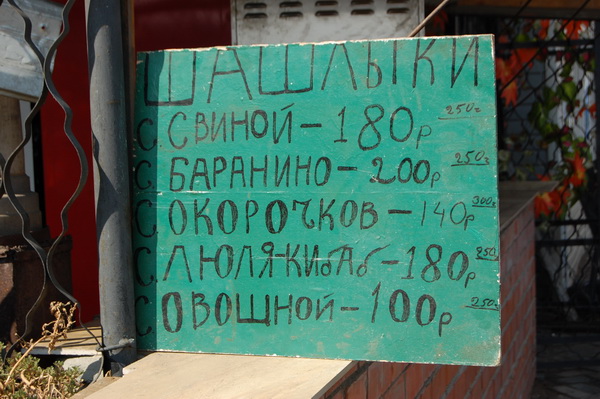 ШАШЛЫКИ
С. СВИНОЙ – 180р 250г
С. БАРАНИНО – 200р 250г
С. ОКОРОЧКОВ – 140р 300г
С. ЛЮЛЯ-КИбАб – 180р 250г
С. ОВОЩНОЙ – 100р 250г